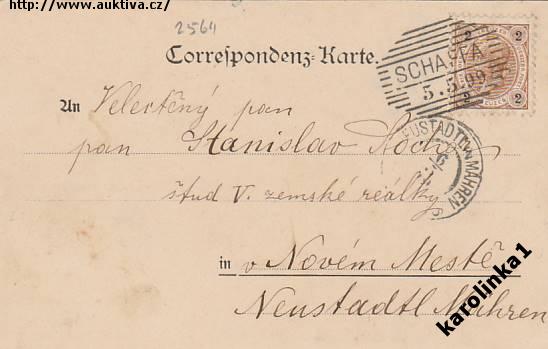 http://www.auktiva.cz/
2564
Correspondenz-Karte.
2 2
SCHAFFA
5.5.99
2 2
An Velectěný pan
pan Stanislav
NEUSTADTL IN MÄHREN
6
stud V. zemské reálky
in v Novém Mestě
Neustadtl Mähren
karolinka1